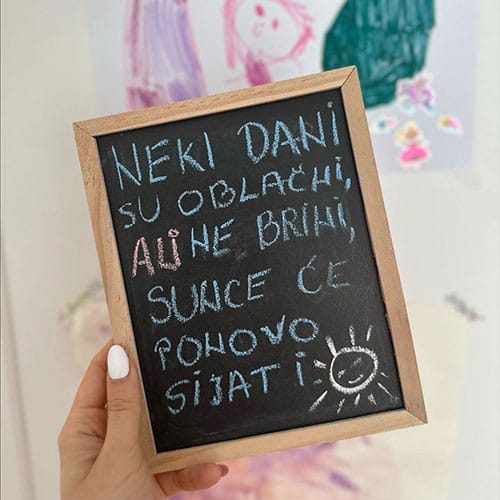 NEKI DANI
SU OBLAČNI,
ALI NE BRINI,
SUNCE ĆE
PONOVO
SIJATI.